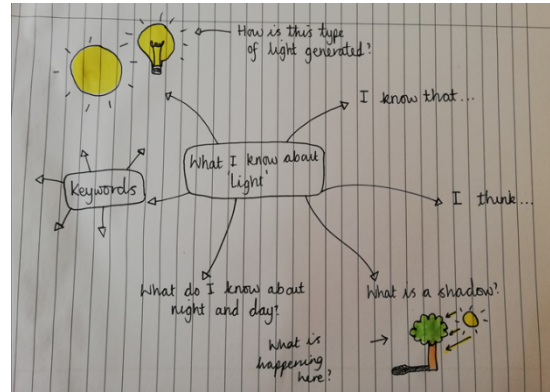 How is this type
of light generated?
I know that...
What I know about
'Light'
Keywords
I think...
What do I know about
night and day?
What is a shadow?
What is
happening
here?